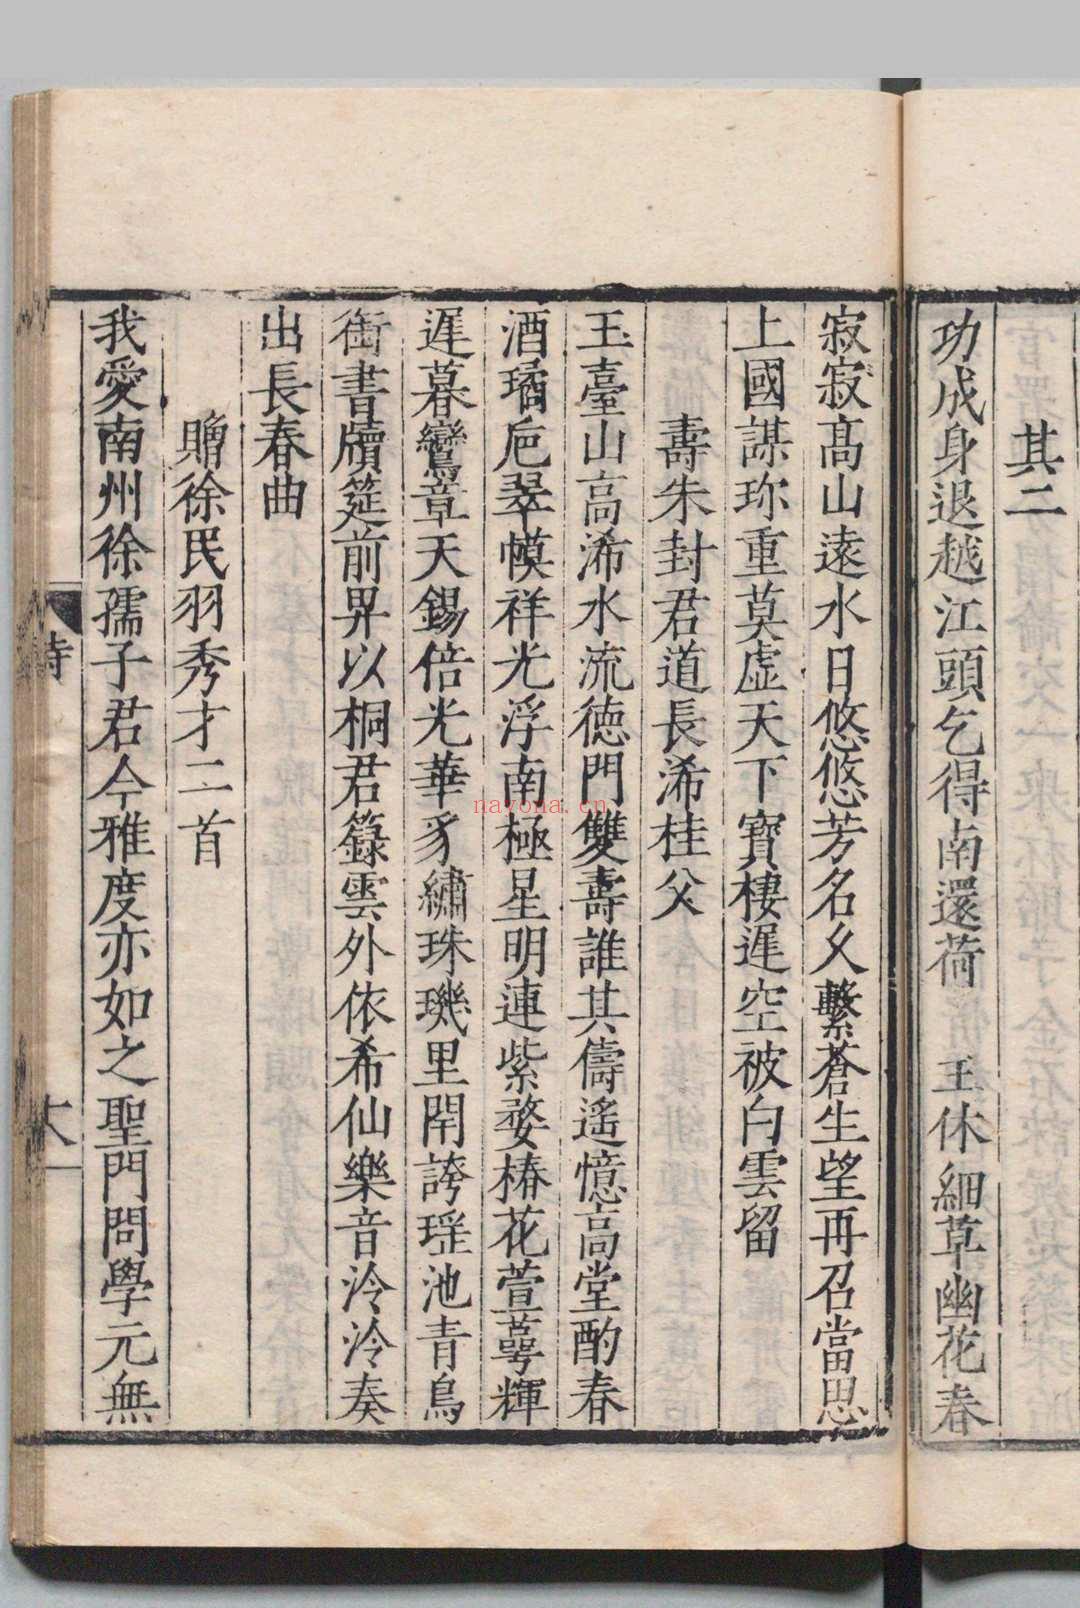 其二
功成身退越江頭乞得南還荷 王休細草幽花春
寂寂髙山遠水日悠悠芳名久繫蒼生望再召當思
上國謀珎重莫虛天下寶棲遲空被白雲留
壽朱封君道長浠桂父
玉臺山高浠水流德門雙壽誰其儔遙憶高堂酌春
酒璚卮翠幙祥光浮南極星明連紫婺椿花萱萼輝
遲暮鸞章天錫倍光華豸繡珠璣里閈誇瑶池青鳥
銜書牘筵前畀以桐君籙雲外依希仙樂音泠泠奏
出長春曲
贈徐民羽秀才二首
我愛南州徐孺子君今雅度亦如之聖門問學元無
詩
nayona.cn